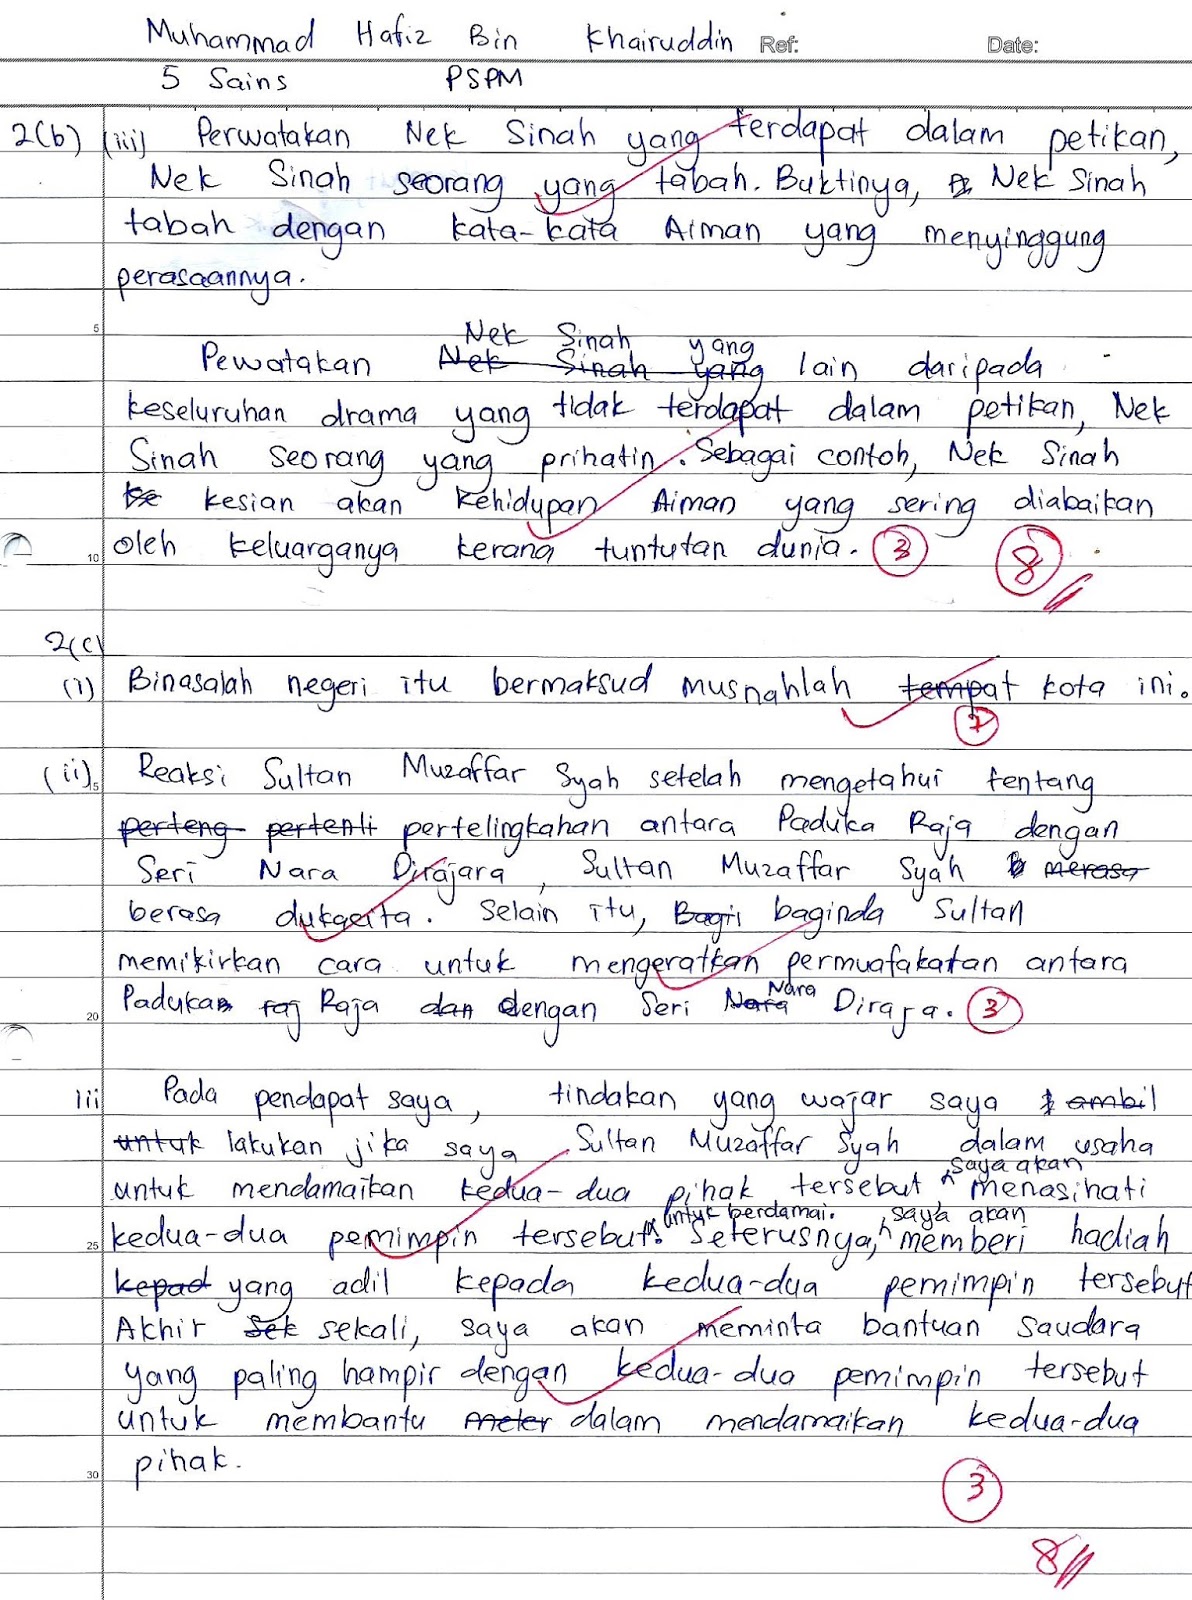 Muhammad Hafiz Bin Khairuddin Ref: Date:
5 Sains PSPM
2(b) (iii) Perwatakan Nek Sinah yang terdapat dalam petikan,
Nek Sinah seorang yang tabah. Buktinya, Nek Sinah
tabah dengan kata-kata Aiman yang menyinggung
perasaannya.
5
Nek Sinah yang
Pewatakan Nek Sinah yang lain daripada
keseluruhan drama yang tidak terdapat dalam petikan, Nek
Sinah seorang yang prihatin. Sebagai contoh, Nek Sinah
ke kesian akan kehidupan Aiman yang sering diabaikan
10 oleh keluarganya kerana tuntutan dunia. 3 8
2(c)
(i) Binasalah negeri itu bermaksud musnahlah tempat kota ini.
2
(ii) Reaksi Sultan Muzaffar Syah setelah mengetahui tentang
15
perteng pertenti pertelingkahan antara Paduka Raja dengan
Seri Nara Dirajara, Sultan Muzaffar Syah b merasa
berasa dukacita. Selain itu, Bagi baginda Sultan
memikirkan cara untuk mengeratkan permuafakatan antara
Nara
20 Padukan raj Raja dan dengan Seri Nara Diraja. 3
iii Pada pendapat saya, tindakan yang wajar saya ambil
untuk lakukan jika saya Sultan Muzaffar Syah dalam usaha
saya akan
untuk mendamaikan kedua-dua pihak tersebut, menasihati
untuk berdamai. saya akan
25 kedua-dua pemimpin tersebut. Seterusnya, memberi hadiah
kepad yang adil kepada kedua-dua pemimpin tersebut
Akhir sek sekali, saya akan meminta bantuan saudara
yang paling hampir dengan kedua-dua pemimpin tersebut
untuk membantu meter dalam mendamaikan kedua-dua
30 pihak.
3
8